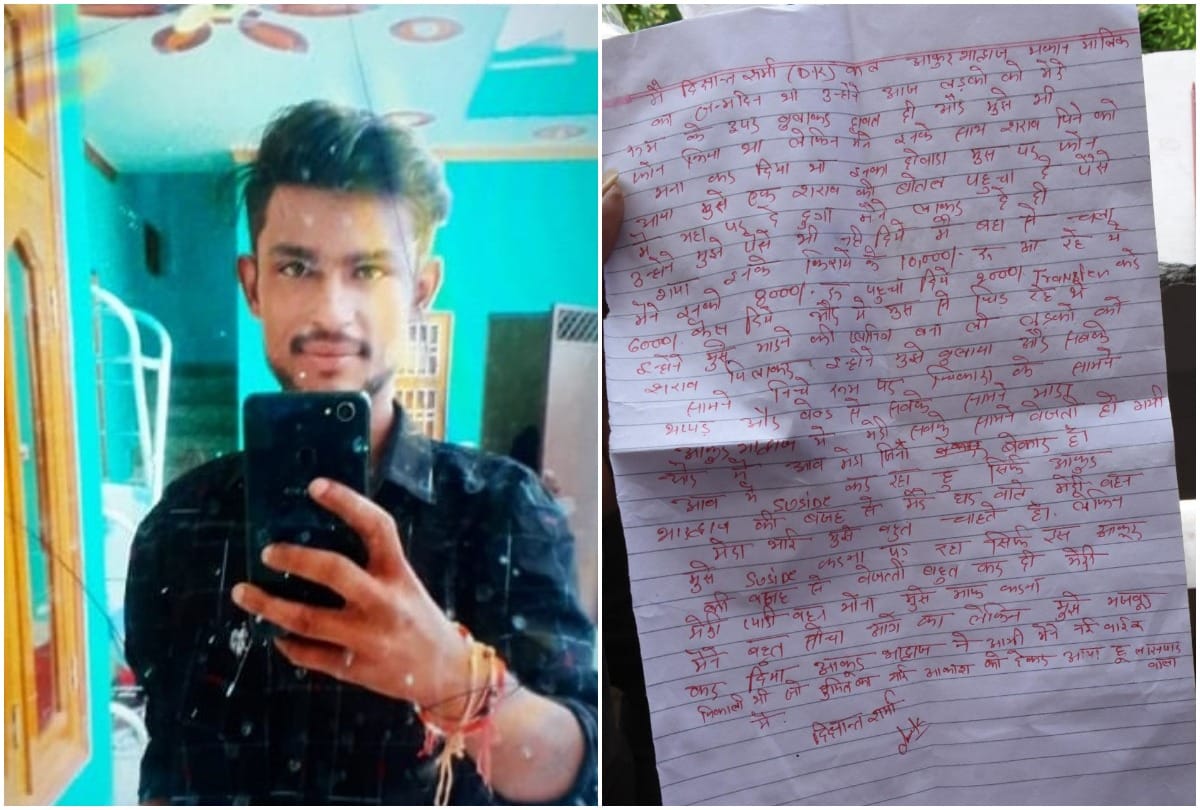 मै दिक्षान्त शर्मा (D.K) कल आकुर भाद्वाज मकान मालिक
का जन्मदिन थी उन्होने आज लड़को को मेरे
रूम के उपर बुलाकर दावत दी और मुझे भी
फोन किया था लेकिन मैने इनके साथ शराब पिने को
मना कर दिया था इनका दोबारा मुझ पर फोन
आया मुझे एक शराब की बोतल पहुचा दे पैसे
मै यहा पर दे दुगा मैने लाकर दे दी
उन्होने मुझे पैसे भी नही दिये मै वहा से चला
गया इनके किराये के 10,000/- रु आ रहे थे
मैने इनको 8000/- रु पहुचा दिये 2000/ Transfer करे
6000/ केस दिये और ये मुझ से चिड़ रहे थे
इन्होने मुझे मारने की प्लानिग बना ली लड़को को
शराब पिलाकर इन्होने मुझे बुलाया और सबके
सामने निचे रूम पर के सामने
थप्पड़ और से सबके सामने मारा
आकुर भाद्वाज ने मेरी सबके सामने बेजती हो गयी
और मै अब मेरा जिना बेकार है।
अब मै suside कर रहा हु सिर्फ आकुर
भाद्वाज की वजह से मेरे घर वाले मेरी बहन
मेरा भाई मुझे बहुत चाहते है। लेकिन
मुझे suside करना पड़ रहा सिर्फ इस आकुर
की वजह से बेजती बहुत कर दी मेरी
मेरी प्यारी बहन मोना मुझे माफ करना
मैने बहुत सोचा आगे का लेकिन मुझे मजबूर
कर दिया आकुर भाद्वाज ने अभी मैने नई बाईक
निकाली थी जो सुमित का भाई आकाश को देकर आया हू
मै.
दिक्षान्त शर्मा